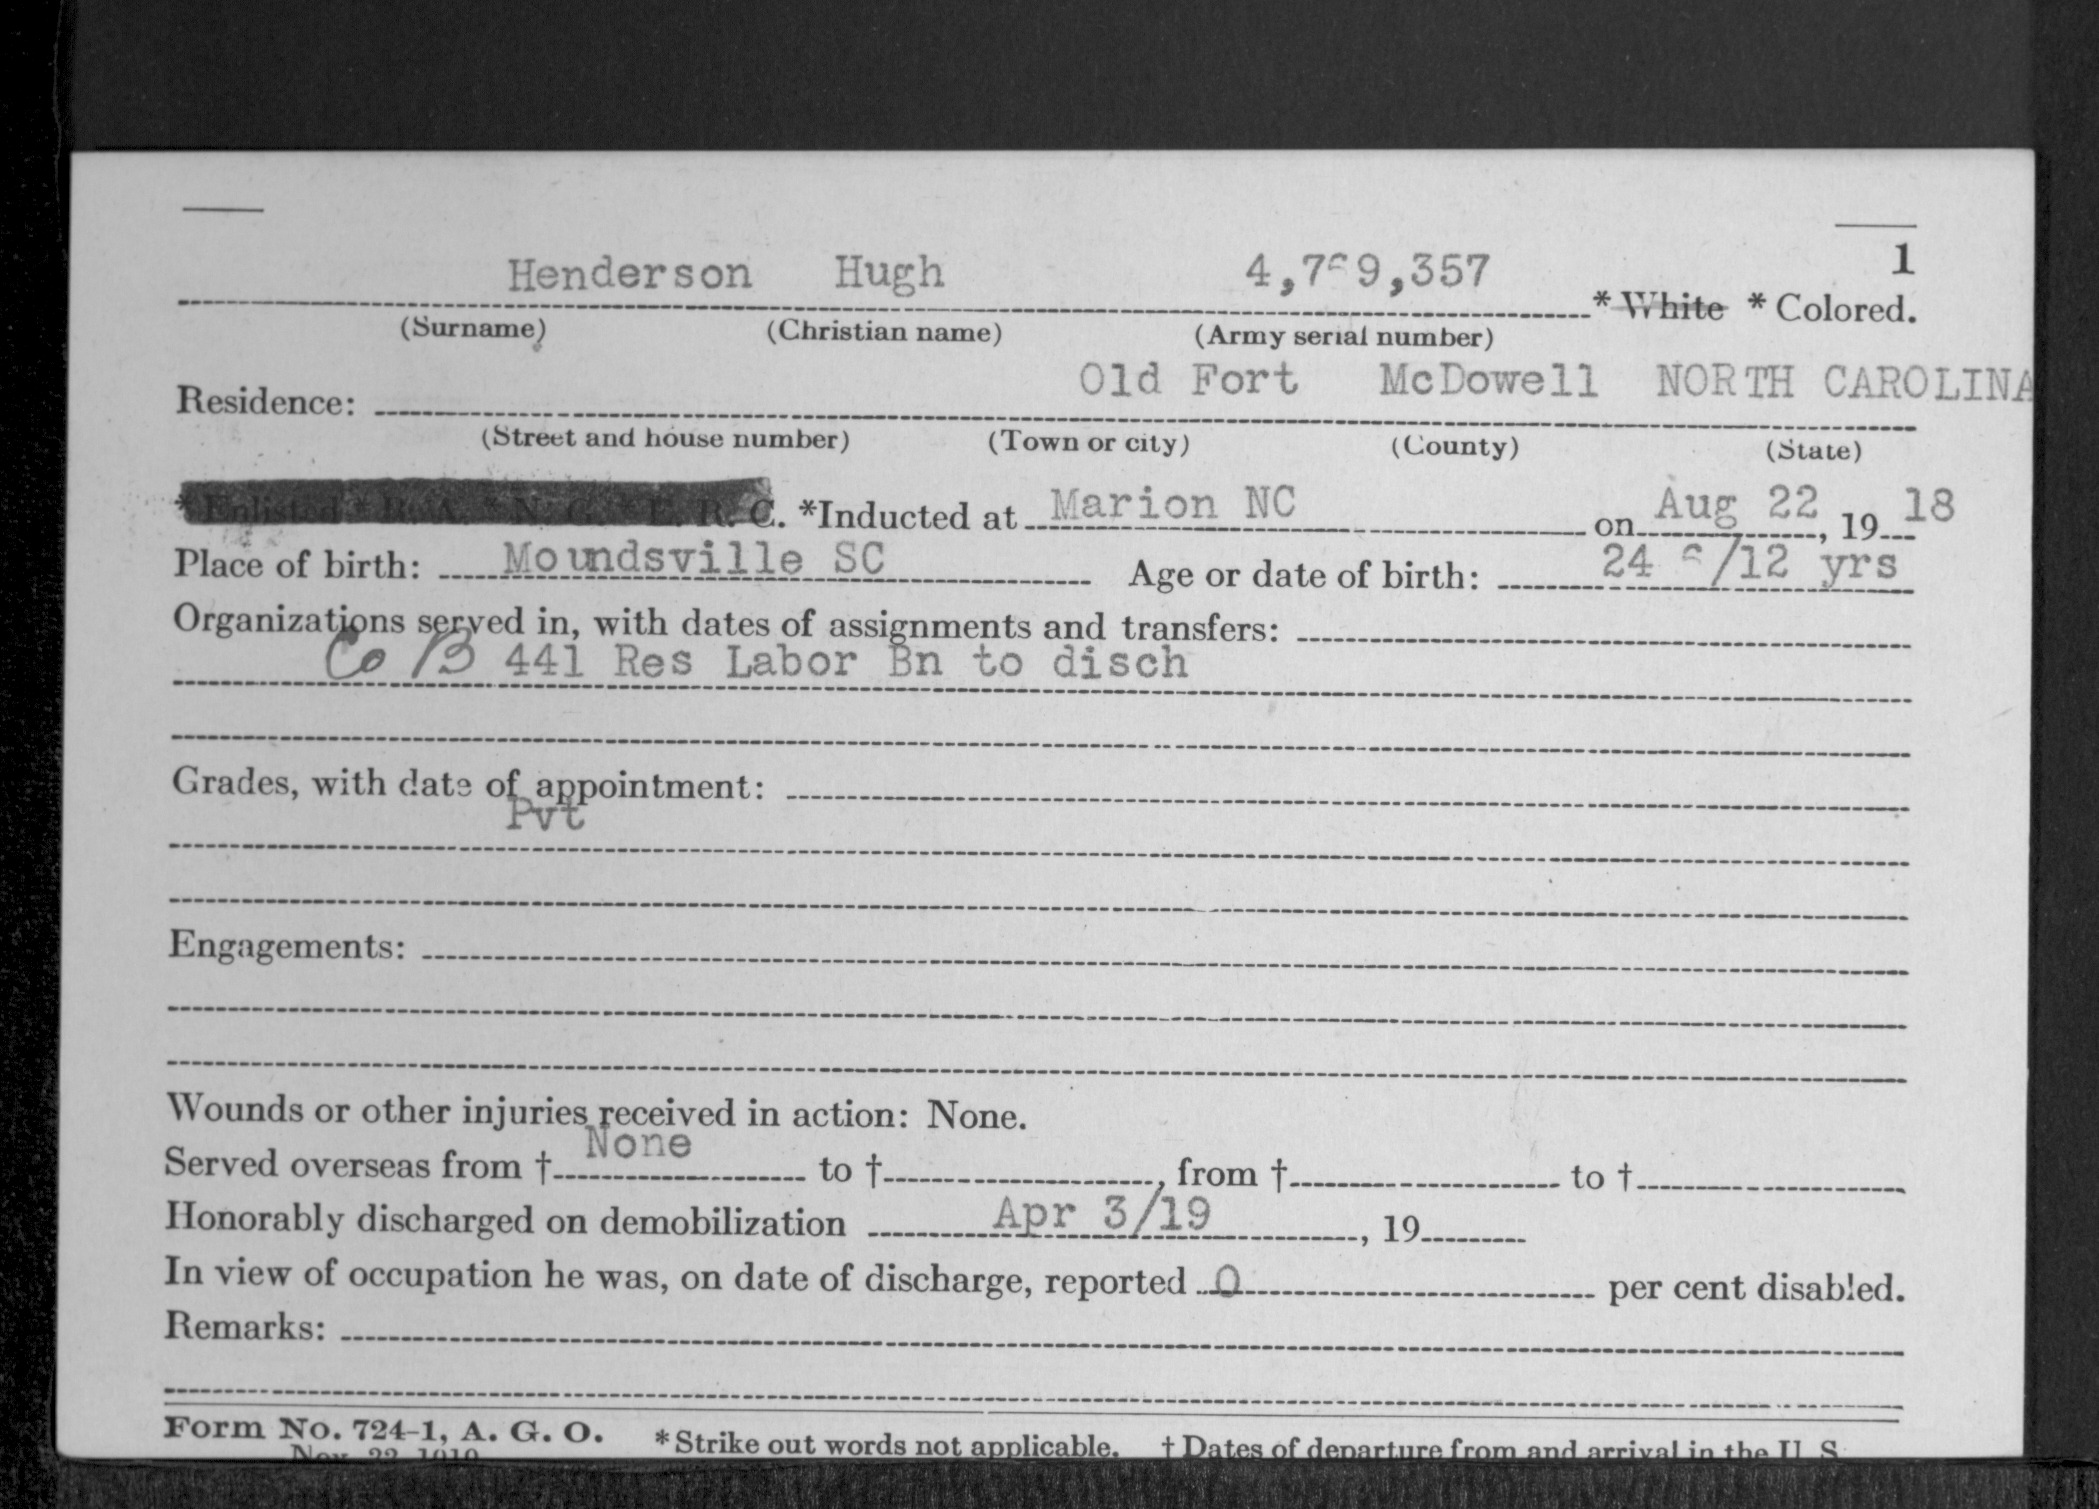 1
Henderson Hugh 4,7 9,357 * White * Colored.
(Surname) (Christian name) (Army serial number)
Old Fort McDowell NORTH CAROLINA
Residence:
(Street and house number) (Town or city) (County) (State)
* Enlisted * R. A. * N. G. * E. R. C. *Inducted at Marion NC on Aug 22, 19 18
Place of birth: Moundsville SC Age or date of birth: 24 /12 yrs
Organizations served in, with dates of assignments and transfers:
Co B 441 Res Labor Bn to disch
Grades, with date of appointment:
Pvt
Engagements:
Wounds or other injuries received in action: None.
Served overseas from † None to †, from † to †
Honorably discharged on demobilization Apr 3/19, 19
In view of occupation he was, on date of discharge, reported 0 per cent disabled.
Remarks:
Form No. 724-1, A. G. O. * Strike out words not applicable. † Dates of departure from and arrival in the U. S.
Nov. 22, 1919